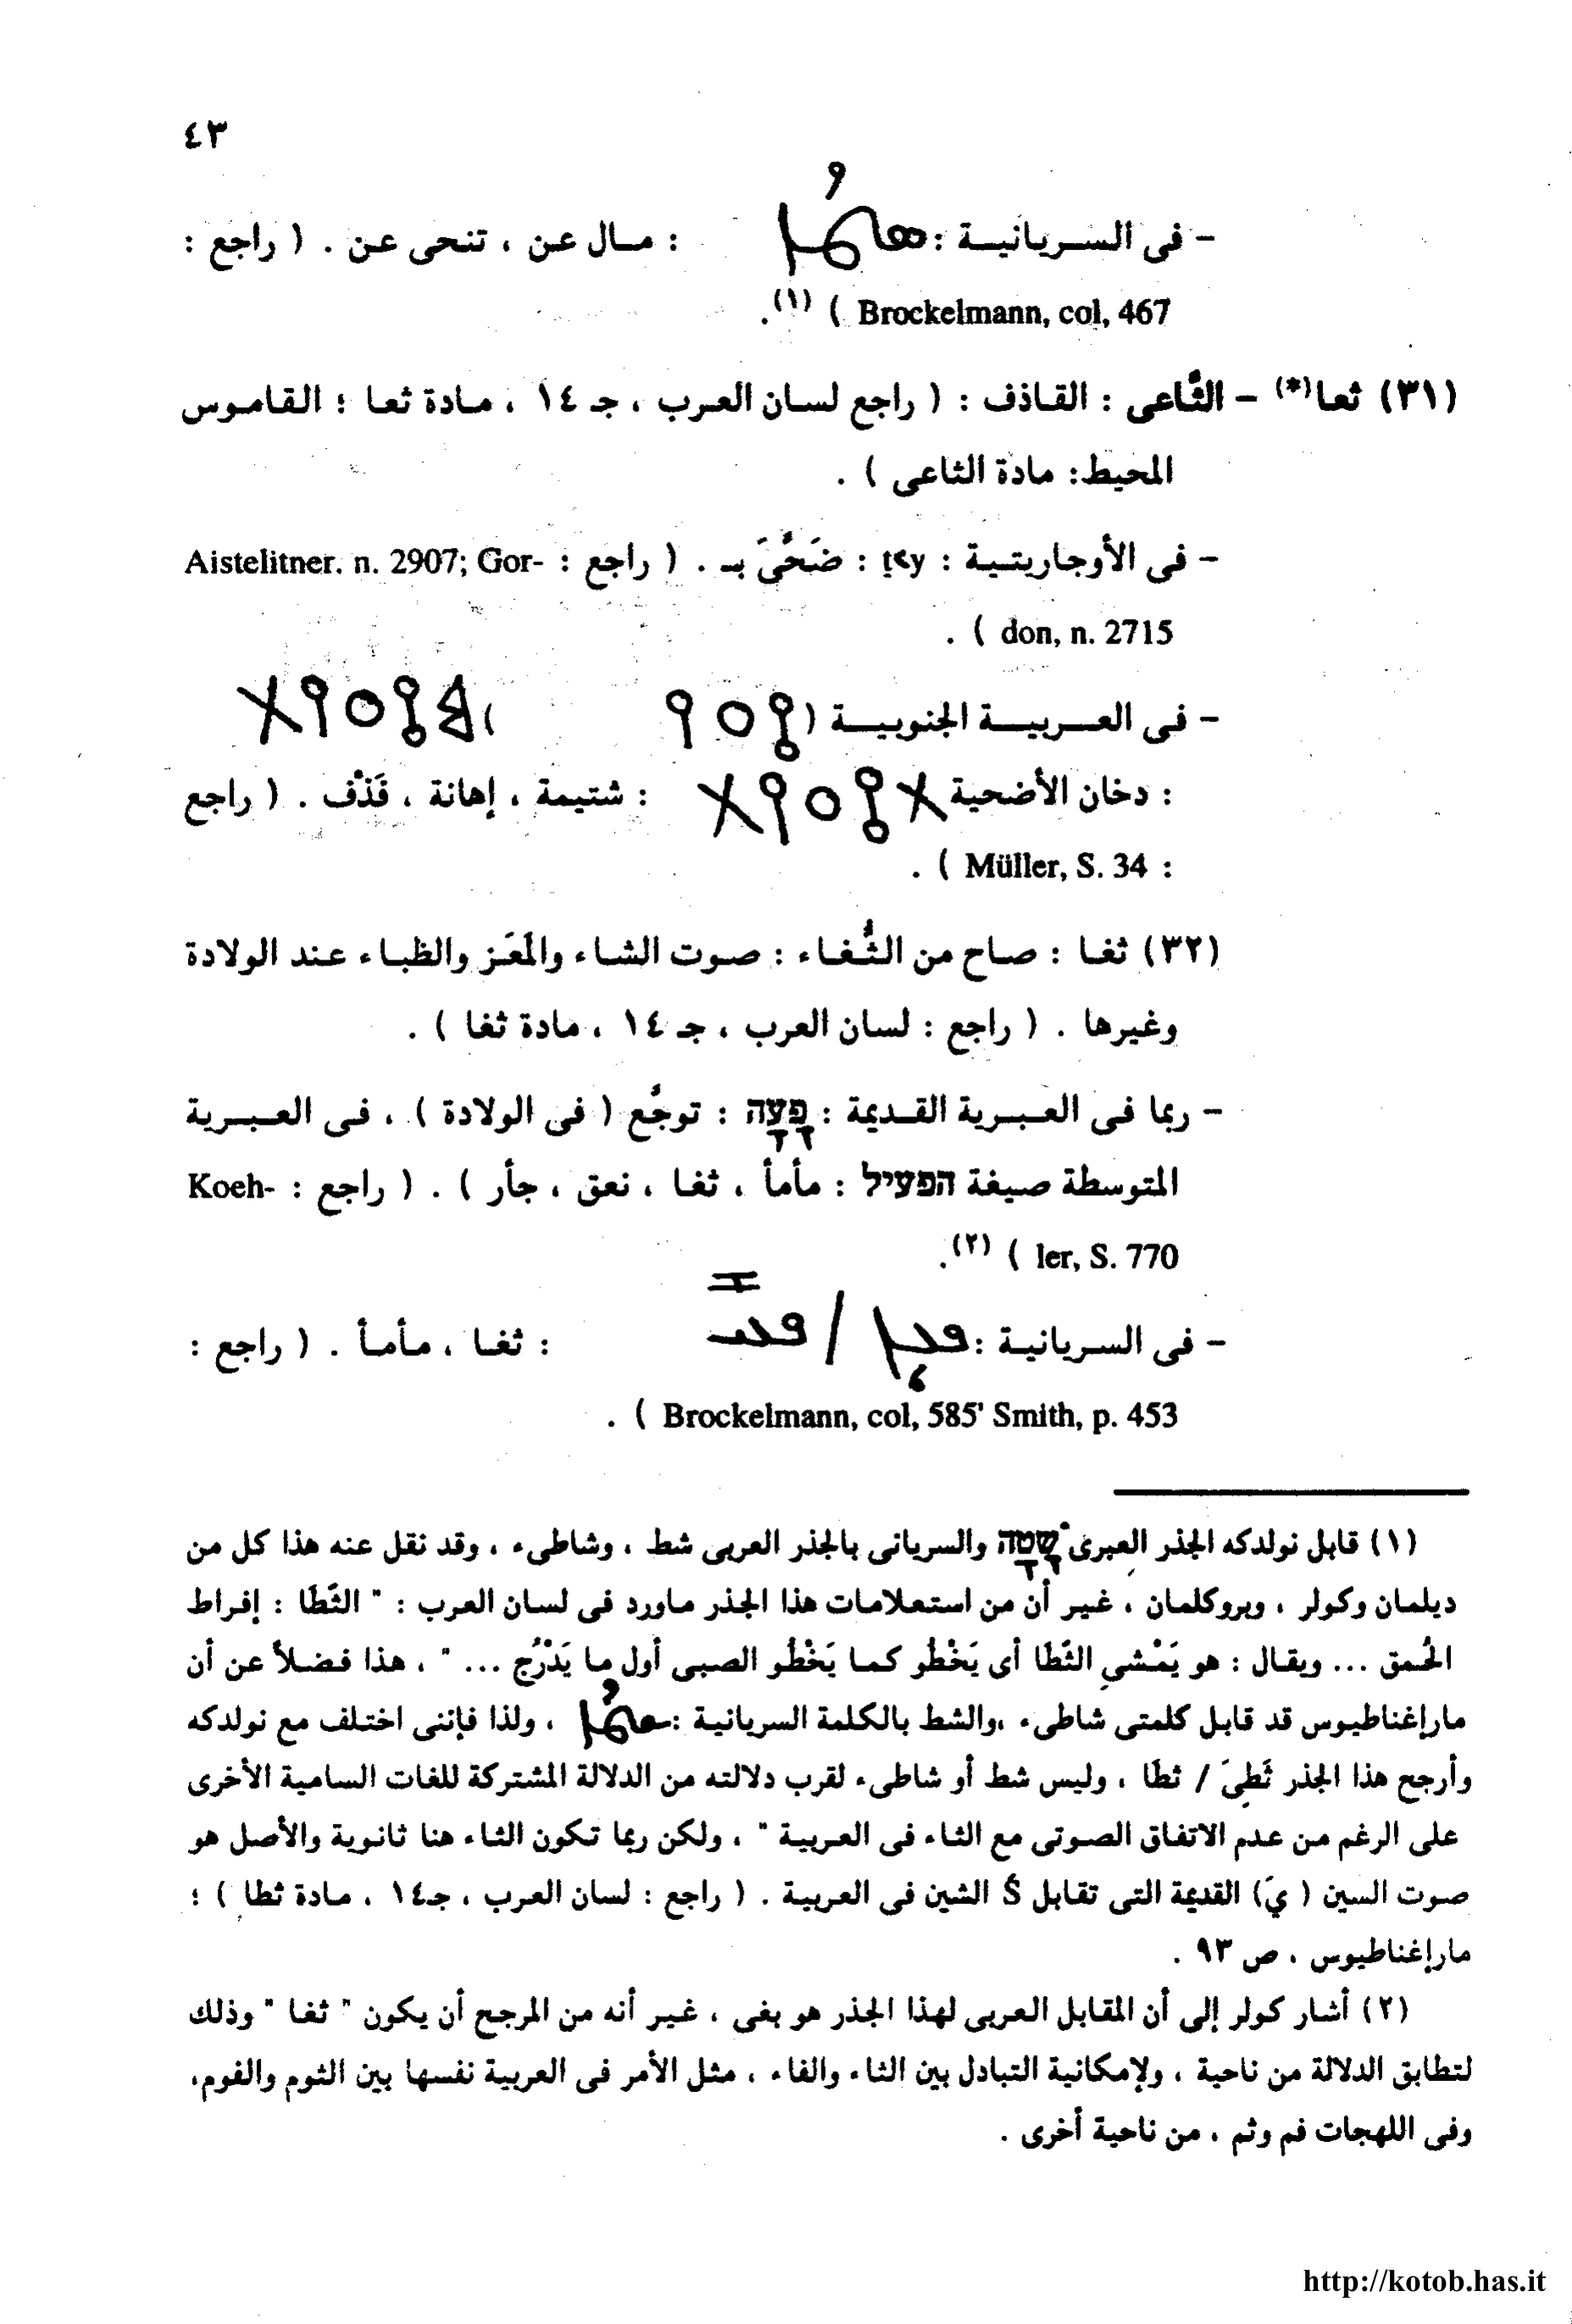 ٤٣
- فى السـريانيـة : ܣܛܐ : مـال عن ، تنحى عن . ( راجع :
Brockelmann, col, 467 ) (١).
(٣١) ثعـا(*) - الثَّاعى : القـاذف : ( راجع لسـان العرب ، جـ ١٤ ، مـادة ثعـا ؛ القـامـوس
المحيط: مادة الثاعى ) .
- فى الأوجاريتـية : : ضَحَّىَ بـ . ( راجع : Aistelitner. n. 2907; Gor-
don, n. 2715 ) .
- فى العـــربيـــة الجنوبيـــة ( 𐩻𐩲𐩺 ،
: دخان الأضحية 𐩩𐩻𐩲𐩺𐩩 : شتيمة ، إهانة ، قَذْف . ( راجع
: Müller, S. 34 ) .
(٣٢) ثغـا : صـاح من الثُّـغـاء : صـوت الشـاء والمَعَـز والظبـاء عـند الولادة
وغيرها . ( راجع : لسان العرب ، جـ ١٤ ، مادة ثغا ) .
- ربما فى العـبـرية القـديمة : פָּעָה : توجُّع ( فى الولادة ) ، فـى العـبـرية
المتوسطة صيغة הפעיל : مأمأ ، ثغـا ، نعق ، جأر ) . ( راجع : Koeh-
ler, S. 770 ) (٢).
- فى السريانيـة : ܦܥܐ / : ثغـا ، مـأمـأ . ( راجع :
Brockelmann, col, 585' Smith, p. 453 ) .
(١) قابل نولدكه الجذر العبرى שׂטה والسريانى بالجذر العربى شط ، وشاطىء ، وقد نقل عنه هذا كل من
ديلمان وكولر ، وبروكلمان ، غـير أن من استعـلامات هذا الجذر مـاورد فى لسـان العرب : " الثَّطَا : إفـراط
الحُمق ... ويقـال : هو يَمْشي الثَّطَا أى يَخْطُر كمـا يَخْطُو الصبى أول ما يَدْرُج ... " ، هذا فـضـلاً عن أن
مارإغناطيوس قد قابل كلمتى شاطىء ،والشط بالكلمة السريانية : ܣܛܐ ، ولذا فإننى اختـلف مع نولدكه
وأرجع هذا الجذر ثَطِىَ / ثطَا ، وليس شط أو شاطىء لقرب دلالته من الدلالة المشتركة للغات السامية الأخرى
على الرغم مـن عدم الاتفـاق الصـوتى مع الثاء فى العـربية " ، ولكن ربما تكون الثاء هنا ثانـوية والأصل هو
صوت السين ( ) القديمة التى تقابل Ś الشين فى العربية . ( راجع : لسان العرب ، جـ١٤ ، مـادة ثطا ) ؛
مارإغناطيوس ، ص ٩٣ .
(٢) أشـار كولر إلى أن المقابل العربى لهذا الجذر هو بغى ، غـير أنه من المرجح أن يكون " ثغـا " وذلك
لتطابق الدلالة من ناحية ، ولإمكانية التبادل بين الثاء والفاء ، مثل الأمر فى العربية نفسها بين الثوم والفوم،
وفى اللهجات فم وثم ، من ناحية أخرى .
http://kotob.has.it